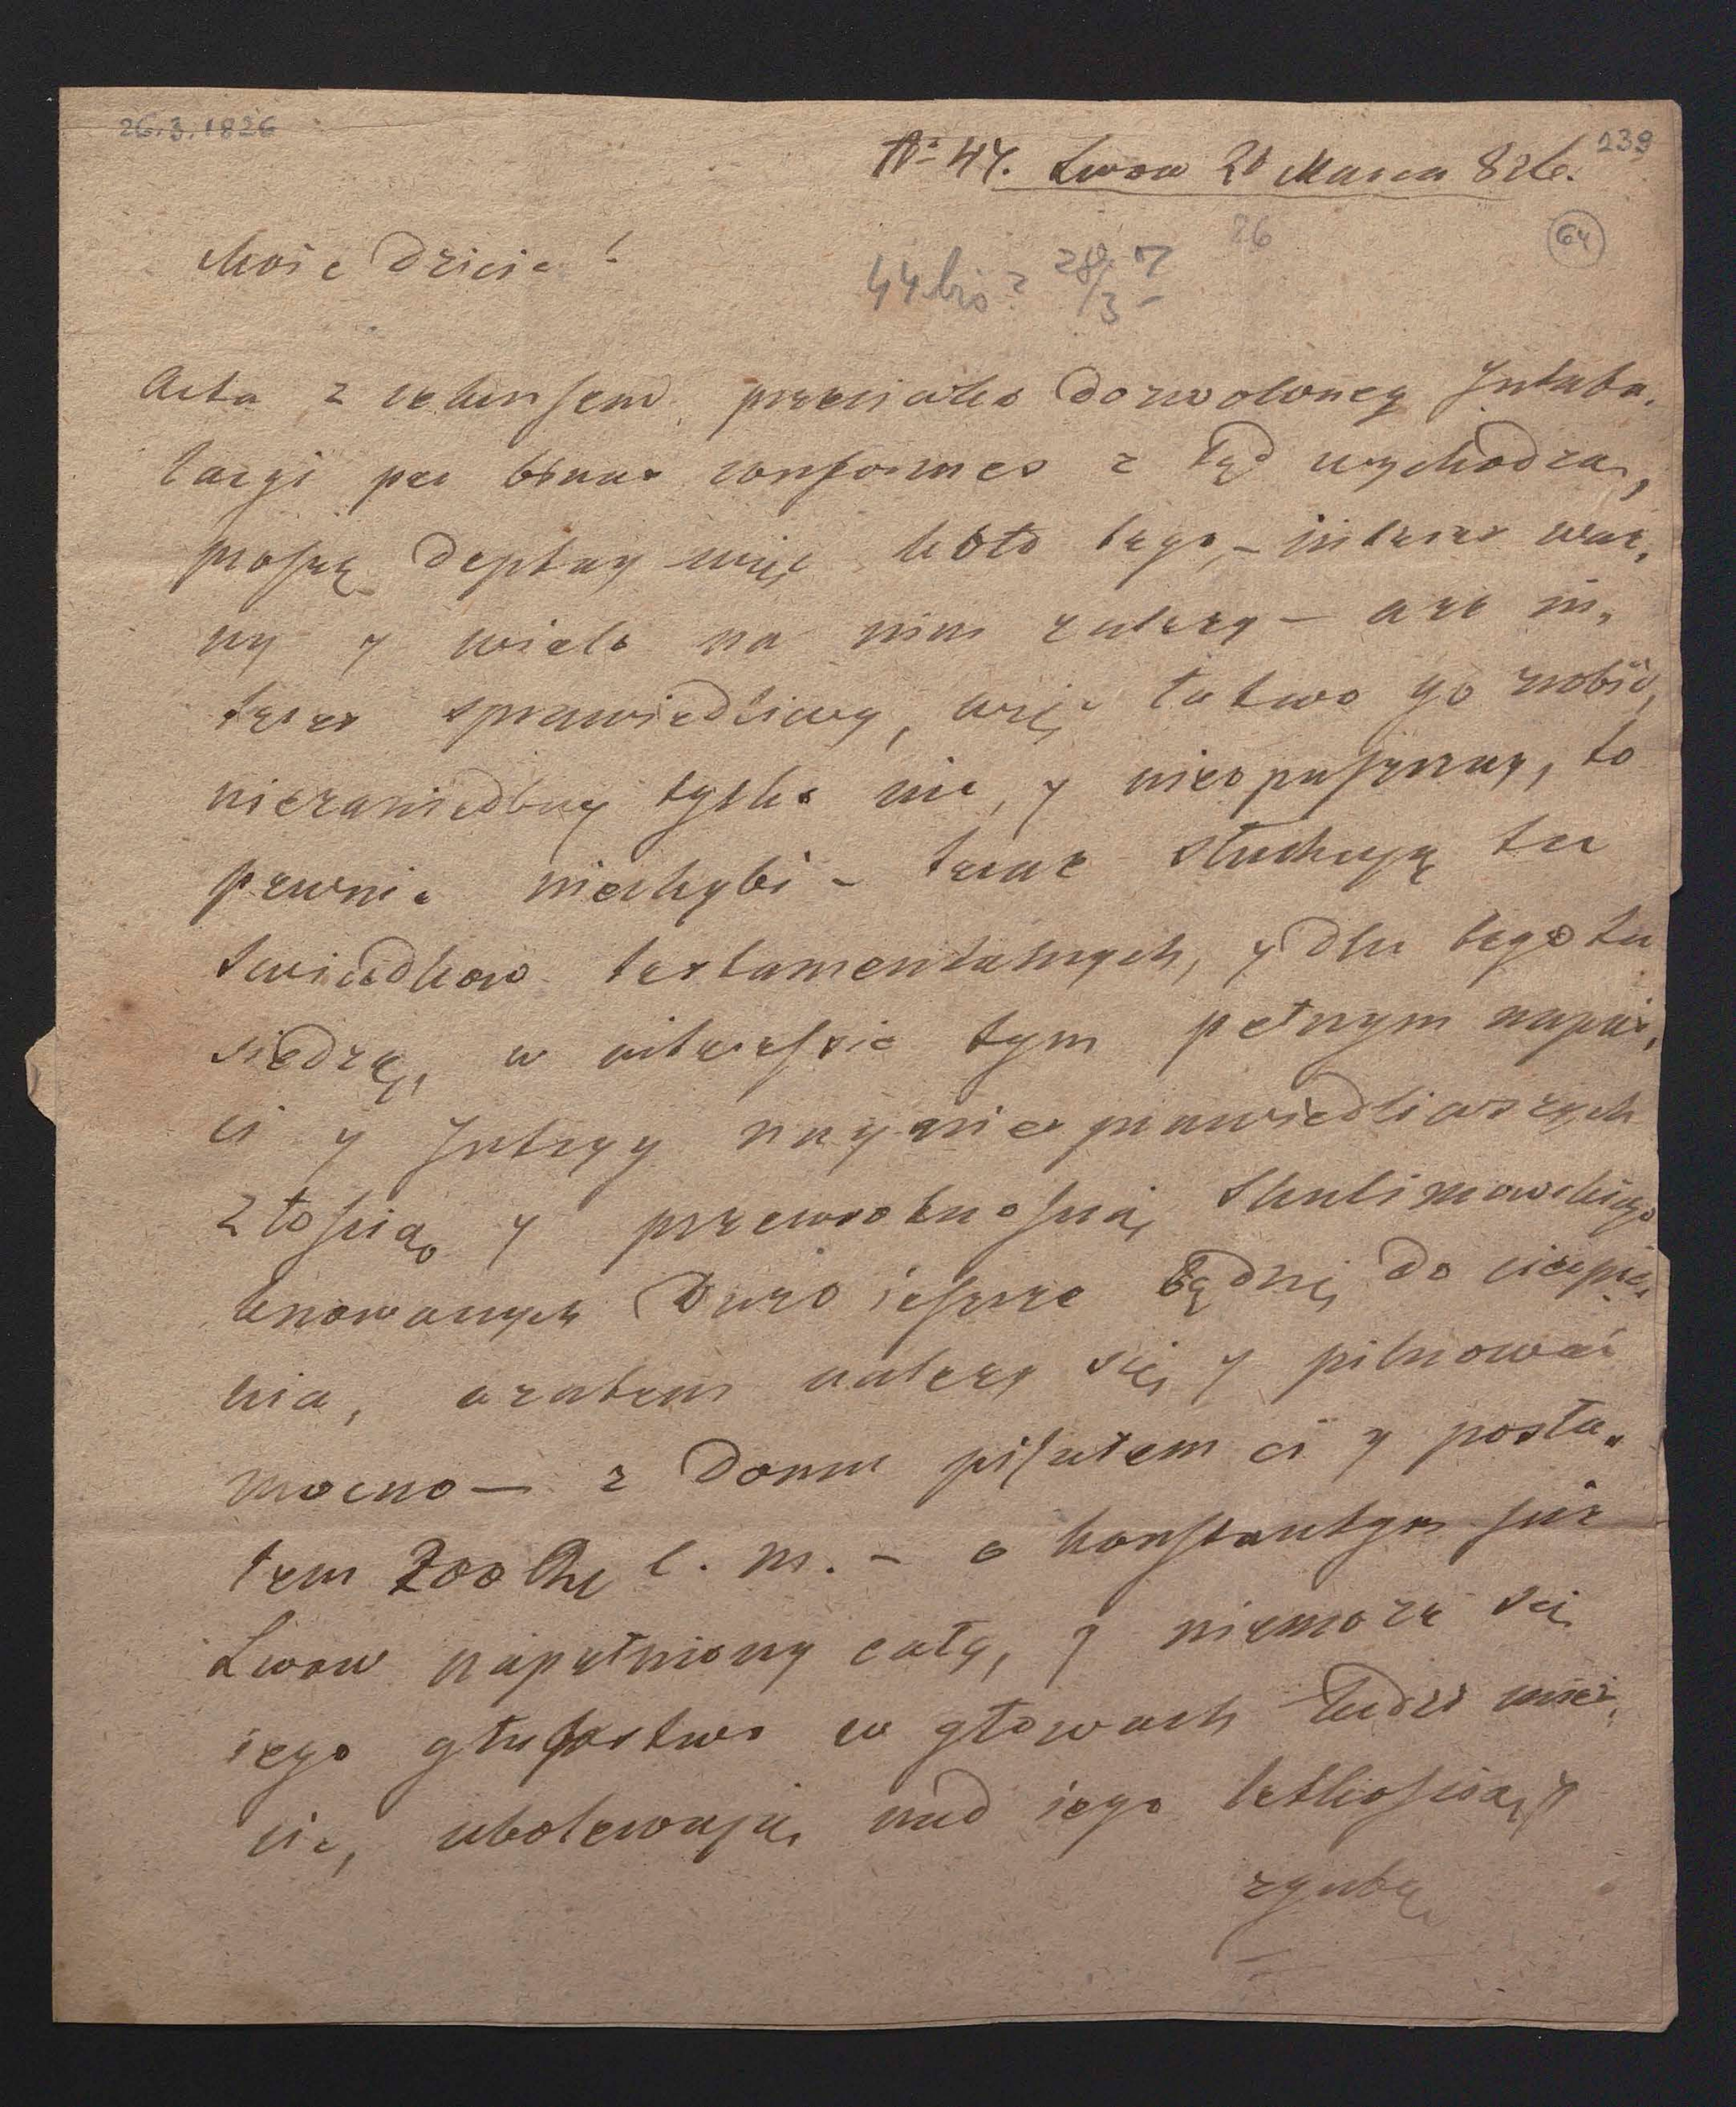 26.3.1826
239
N° 44. Lwow 26 Marca 826.
26
64
Moie Dziecie!
44 bis? 28/3
Acta z rekursem przeciwko dozwoloney Intabu-
lacyi per binas conformes z tąd wychodzą,
proszę deptay więc koło tego, – interes waż-
ny y wiele na nim zależy – a że in-
teres sprawiedliwy, więc łatwo go zrobić,
niezaniedbuy tylko nic, y nieopuszczay, to
pewnie niechybi – teraz słuchają tu
swiadkow testamentalnych, y dla tego tu
siedzę, w interessie tym pełnym napaś-
ci y Intryg nayniesprawiedliwszych
złością y przewrotnością Skulimowskiego
knowanych Dużo ieszcze będzie do cierpie-
nia, a zatem należy się y pilnować
mocno – z Domu pisałem ci y posła-
łem 200 c. m. – o Konstantym już
Lwow napełniony cały, y niemoże się
iego głupstwo w głowach ludzi mieś-
cić, ubolewają nad iego lekkością y
zgubą